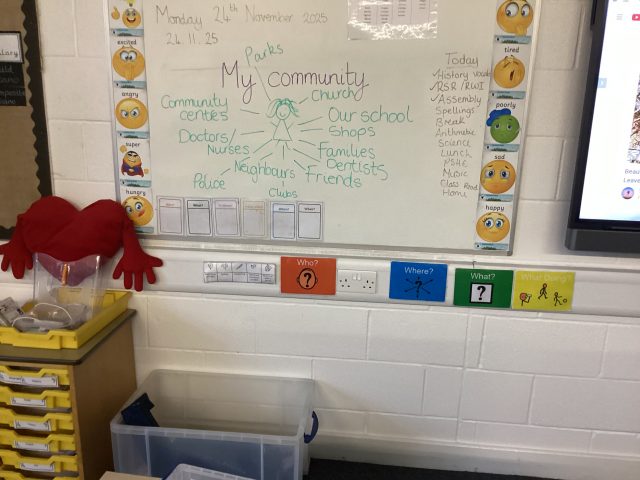 Monday 24th November 2025
24.11.25
My community
Parks
Church
Our school
Shops
Families
Dentists
Friends
Clubs
Neighbours
Police
Doctors/
Nurses
Community
centres
Today
✓ History Vocab
✓ RSR / RWI
✓ Assembly
Spellings
Break
Arithmetic
Science
Lunch
PSHE
Music
Class Read
Home
excited
angry
super
hungry
tired
poorly
sad
happy
Who?
Where?
What?
What Doing?